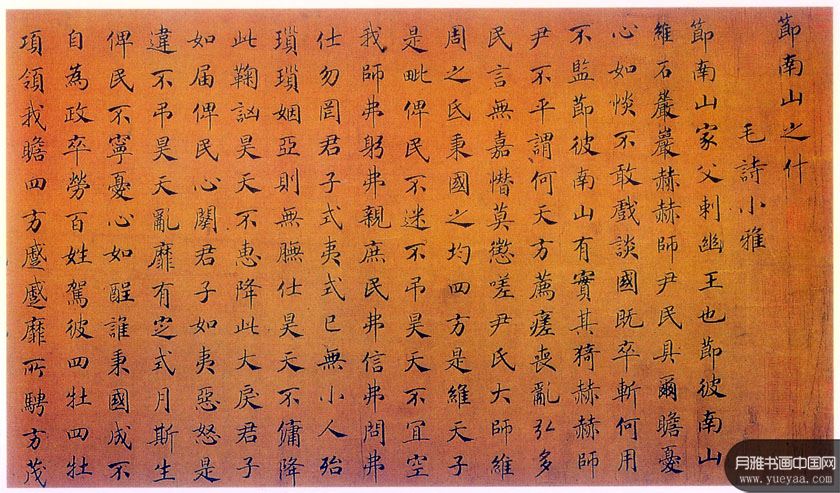 節南山之什
毛詩小雅
節南山家父刺幽王也節彼南山
維石巖巖赫赫師尹民具爾瞻憂
心如惔不敢戲談國既卒斬何用
不監節彼南山有實其猗赫赫師
尹不平謂何天方薦瘥喪亂弘多
民言無嘉憯莫懲嗟尹氏大師維
周之氐秉國之均四方是維天子
是毗俾民不迷不吊昊天不宜空
我師弗躬弗親庶民弗信弗問弗
仕勿罔君子式夷式已無小人殆
瑣瑣姻亞則無膴仕昊天不傭降
此鞠訩昊天不惠降此大戾君子
如届俾民心闋君子如夷惡怒是
違不吊昊天亂靡有定式月斯生
俾民不寧憂心如酲誰秉國成不
自為政卒勞百姓駕彼四牡四牡
項領我瞻四方蹙蹙靡所騁方茂
月雅书画中国网
www.yueyaa.com